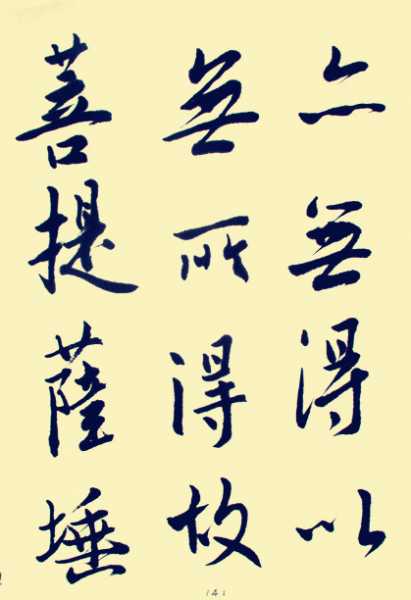 亦無得以
無所得故
菩提薩埵
(4)